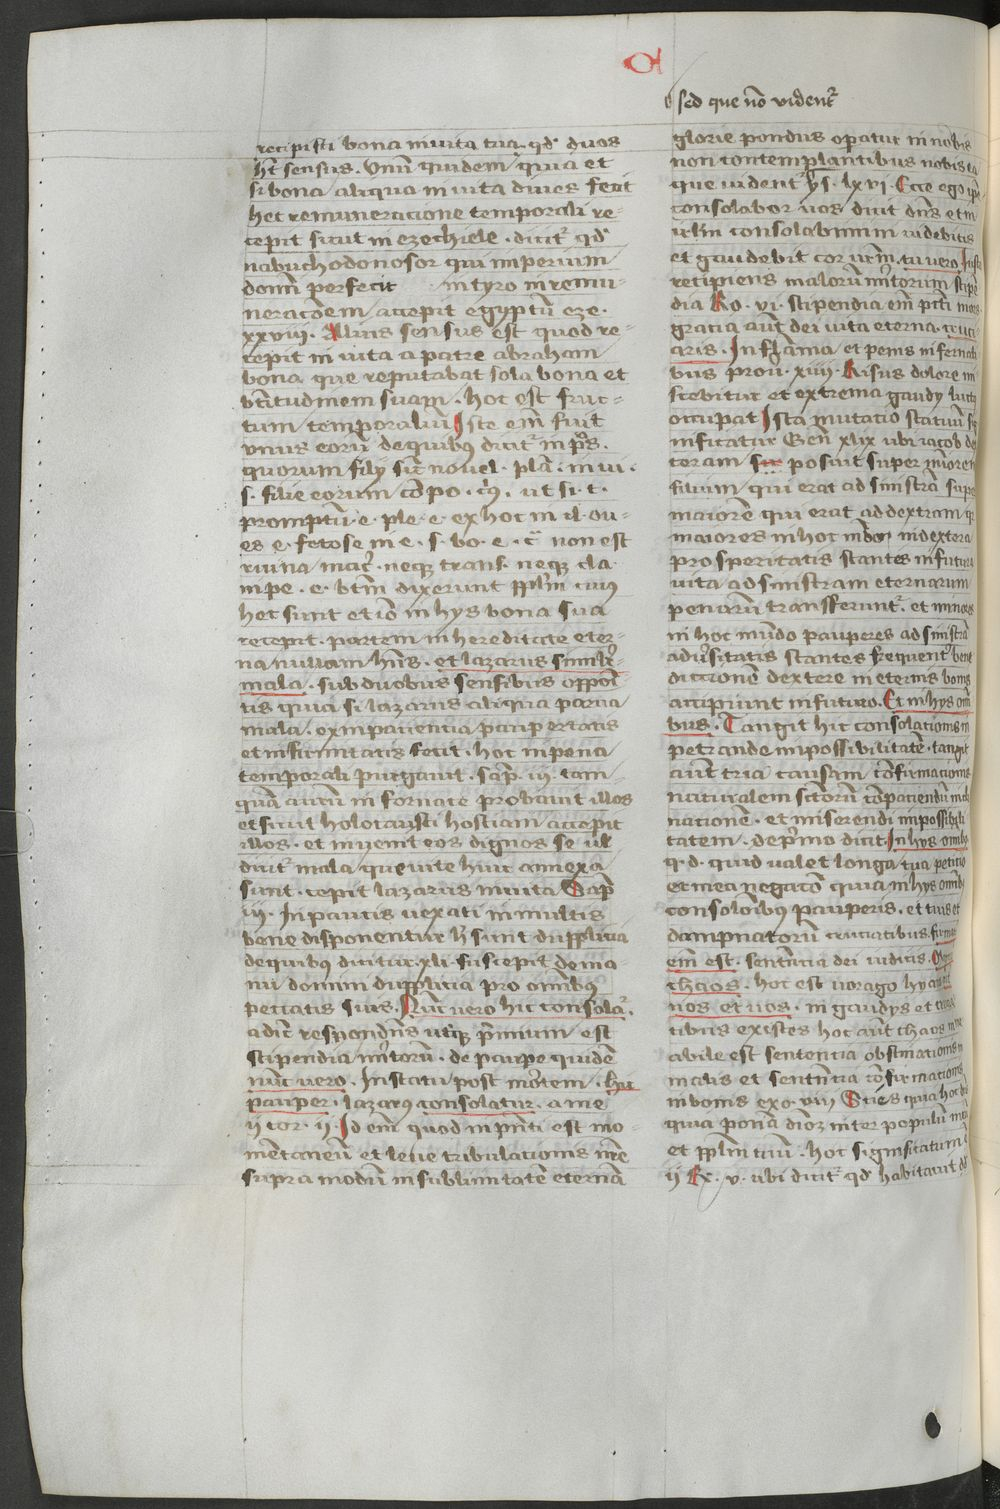 sed que nō videntr̄
recepisti bona in uita tua . qd' duos
hn̄t sensus . Vnū quidem quia et
si bona aliqua in uita diues fecit
hec remuneracione temporali re-
cepit sicut in ezechiele . dicit' qd'
nabuchodonosor qui imperium
domī perfecit in tyro in remu-
neracōem accepit egyptū eze .
xxviii . Alius sensus est quod re-
cepit in uita a patre abraham
bona que reputabat sola bona et
bt̄itudinem suam . hoc est fruc-
tum temporaliū Iste em̄ fuit
vnus eorū de quibus dicit' in ps̄ .
quorum filij sūt nouel . plā . in iu .
s . filie eorum cō po . cī' . ut si . t .
promptū . e . ple . e . ex hoc in il . ou-
es e . fetose in e . s . bo . e . c̄ non est
ruina mac̄ . neqz trans . neqz cla .
in pe . e . bt̄m dixerunt ppl̄m cuius
hec sunt et iō in hys bona sua
recepit . partem in hereditate eter-
na nullam hn̄s . et lazarus similr̄
mala . sub duobus sensibus opposi-
tis quia si lazarus aliqua parua
mala . ex inpaciencia paupertatis
et infirmitatis fecit . hoc in pena
temporali purgauit . sap̄ . iii . tam-
quā aurū in fornace probauit illos
et sicut holocausti hostiam accepit
illos . et inuenit eos dignos se ul'
dicit' mala que uite huic annexa
sunt . cepit lazarus in uita Sap̄
iii . In paucis uexati in multis
bene disponentur h' sunt dupplicia
de quibus dicitur . xli . suscepit de ma-
nu domini dupplicia pro omībus
peccatis suis . Nūc uero hic consolat'
adhuc respondēns utriqz premium est
stipendia m'itorū . de paupe quidē
nūc uero . In statu post mortem . hic
pauper . lazarus consolatur . a me
ii cor . ii . Id em̄ quod in pn̄ti est mo-
mētaneū et leue tribulacionis nr̄e
supra modū in sublimitatē eternā
glorie pondus operatur in nobis
non contemplantibus nobis ea
que uident' ys . lxvi . Ecce ego ipse
consolabor uos dicit dn̄s et in
irl̄m consolabimini uidebitis
et gaudebit cor ur̄m . tu vero Iuste
recipiens malorū m'itorum stipen-
dia Ro . vi . stipendia em̄ pcc̄i mors
gracia aūt dei uita eterna . cruci-
aris . In flāma et penis infernali-
bus prou . xiiii . Risus dolore mi-
scebitur et extrema gaudij luctus
occupat Ista mutatio statuū sig-
nificatur Gen̄ xlix ubi iacob dex-
teram posuit super minorem
filium qui erat ad sinistrā super
maiorē qui erat ad dextram qr
maiores in hoc mūdo in dextera
prosperitatis stantes in futura
uita ad sinistram eternarum
penarū transferunt' . et minores
in hoc mūdo pauperes ad sinistrā
aduersitatis stantes frequent' bene-
dictionē dextere in eternis bonis
accipiunt in futuro . Et in hys omī-
bus . Tangit hic consolacionis in-
petrande inpossibilitatē . tangit
aūt tria causam cōfirmacionis
naturalem sc̄torū cōpaciendū in dā-
nationē . et miserendi impossibili-
tatem . de p'mo dicit . In hys omībus
q . d . quid ualet longa tua peticio
et mea negacō quia in hys omībus
consolōibus pauperis . et tuis et
dampnatorū cruciatibus . firmata
em̄ est . sentēntia dei iudicis . Magnum
chaos . hoc est uorago hyatus inter
nos et uos . in gaudijs et cruci-
atibus existēs hoc aūt chaos inme-
abile est sententia obstinacionis in
malis et sentēntia cōfirmacionis
in bonis exo . viii Sciēs quia hoc dn̄s
quia ponā diōz inter populū meū
et ppl̄m tuū . hoc significatum ē
ii Rx̄ . v . ubi dicit' qd' habitauit dd'